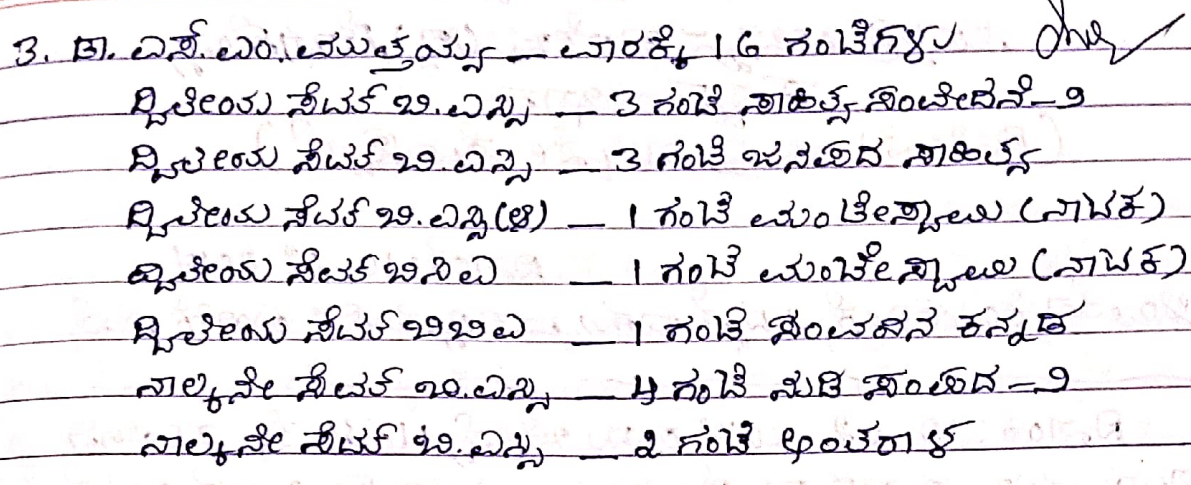 3. ಡಾ. ಎಸ್. ಎಂ. ಮುತ್ತಯ್ಯ — ವಾರಕ್ಕೆ 16 ಗಂಟೆಗಳು
ದ್ವಿತೀಯ ಸೆಮಿಸ್ಟರ್ ಬಿ.ಎಸ್ಸಿ — 3 ಗಂಟೆ ಸಾಹಿತ್ಯ ಸಂವೇದನೆ-೨
ದ್ವಿತೀಯ ಸೆಮಿಸ್ಟರ್ ಬಿ.ಎಸ್ಸಿ — 3 ಗಂಟೆ ಜನಪದ ಸಾಹಿತ್ಯ
ದ್ವಿತೀಯ ಬಿ.ಎಸ್ಸಿ — 1 ಗಂಟೆ ಮಂಟೇಸ್ವಾಮಿ (ನಾಟಕ)
ದ್ವಿತೀಯ ಬಿಸಿಎ — 1 ಗಂಟೆ ಮಂಟೇಸ್ವಾಮಿ (ನಾಟಕ)
ದ್ವಿತೀಯ ಬಿಬಿಎ — 1 ಗಂಟೆ ಸಂವಹನ ಕನ್ನಡ
ನಾಲ್ಕನೇ ಬಿ.ಎಸ್ಸಿ — 4 ಗಂಟೆ ನುಡಿ ಸಂಪದ -೨
ನಾಲ್ಕನೇ ಬಿ.ಎಸ್ಸಿ — 2 ಗಂಟೆ ಅಂತರಾಳ